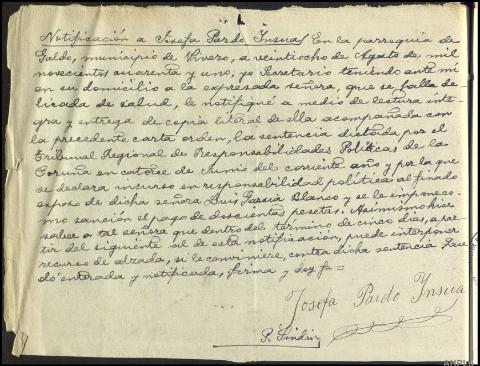 Notificación a Josefa Pardo Insua/ En la parroquia de
Galdo, municipio de Vivero, a veintiocho de Agosto de mil
novecientos cuarenta y uno, yo Secretario teniendo ante mi
en su domicilio a la expresada señora, que se halla de-
licada de salud, le notifiqué a medio de lectura inte-
gra y entrega de copia literal de ella acompañada con
la precedente carta orden, la sentencia dictada por el
Tribunal Regional de Responsabilidades Politicas de la
Coruña en catorce de Junio del corriente año y por la que
se declara incurso en responsabilidad politica al finado
esposo de dicha señora Luis Blanco y se le impone co-
mo sanción el pago de doscientas pesetas. Asimismo hice
saber a tal señora que dentro del término de cinco dias, a par-
tir del siguiente al de esta notificación, puede interponer
recurso de alzada, si le conviniere, contra dicha sentencia. Que-
dó enterada y notificada, firma y doy fe=
Josefa Pardo Insua